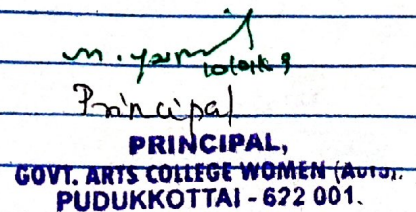 Principal
PRINCIPAL,
GOVT. ARTS COLLEGE WOMEN (Auto).
PUDUKKOTTAI - 622 001.